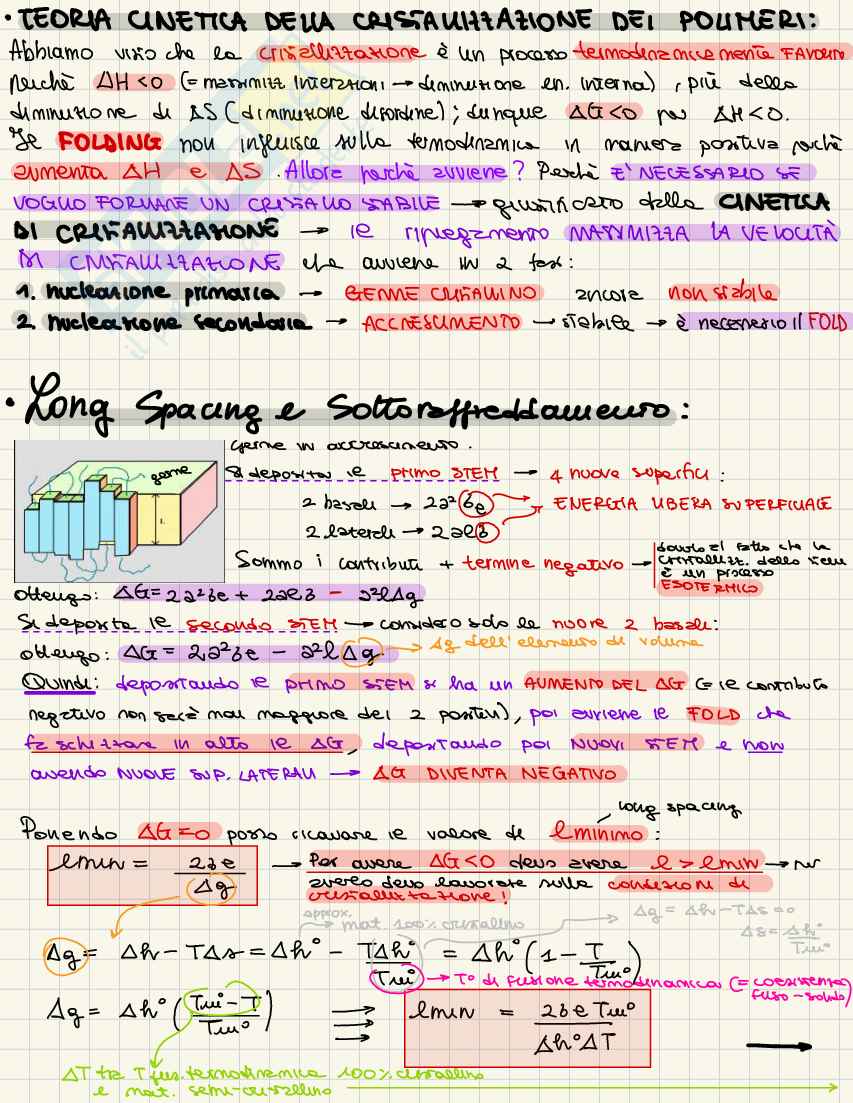 • TEORIA CINETICA DELLA CRISTALLIZZAZIONE DEI POLIMERI:
Abbiamo visto che la cristallizzazione è un processo termodinamicamente FAVORITO
perchè ΔH<0 (= massimizz interazioni → diminuzione en. interna), più della
diminuzione di ΔS (diminuzione disordine); dunque ΔG<0 per ΔH<0.
Il FOLDING non influisce sulla termodinamica in maniera positiva perchè
aumenta ΔH e ΔS. Allora perchè avviene? Perchè E' NECESSARIO SE
VOGLIO FORMARE UN CRISTALLO STABILE → giustificato dalla CINETICA
DI CRISTALLIZZAZIONE → il ripiegamento MASSIMIZZA LA VELOCITÀ
DI CRISTALLIZZAZIONE che avviene in 2 fasi:
1. nucleazione primaria → GERME CRISTALLINO ancora non stabile
2. nucleazione secondaria → ACCRESCIMENTO → stabile → è necessario il FOLD
• Long Spacing e Sottoraffreddamento:
germe in accrescimento.
germe
L
Si deposita il primo STEM → 4 nuove superfici:
2 basali → 2a²δe → ENERGIA LIBERA SUPERFICIALE
2 laterali → 2alδ
Sommo i contributi + termine negativo → dovuto al fatto che la
cristallizz. dello stem
è un processo
ESOTERMICO
ottengo: ΔG = 2a²δe + 2alδ - a²lΔg
Si deposita il secondo STEM → considero solo le nuove 2 basali:
ottengo: ΔG = 2a²δe - a²lΔg → Δg dell'elemento di volume
Quindi: depositando il primo STEM si ha un AUMENTO DEL ΔG (= il contributo
negativo non sarà mai maggiore dei 2 positivi), poi avviene il FOLD che
fa schizzare in alto il ΔG, depositando poi NUOVI STEM e non
avendo NUOVE SUP. LATERALI → ΔG DIVENTA NEGATIVO
long spacing
Ponendo ΔG=0 posso ricavare il valore di lminimo:
lmin = 2δe / Δg → Per avere ΔG<0 devo avere l > lmin → per
averlo devo lavorare sulle condizioni di
cristallizzazione!
approx.
→ mat. 100% cristallino
Δg = Δh - TΔs = 0
Δs = Δh° / Tm°
Δg = Δh - TΔs = Δh° - TΔh° / Tm° = Δh° (1 - T / Tm°)
→ T° di fusione termodinamica (= coesistenza
fuso-solido)
Δg = Δh° (Tm° - T / Tm°) lmin = 2δe Tm° / Δh°ΔT
ΔT tra T fus. termodinamica 100% cristallino
e mat. semi-cristallino